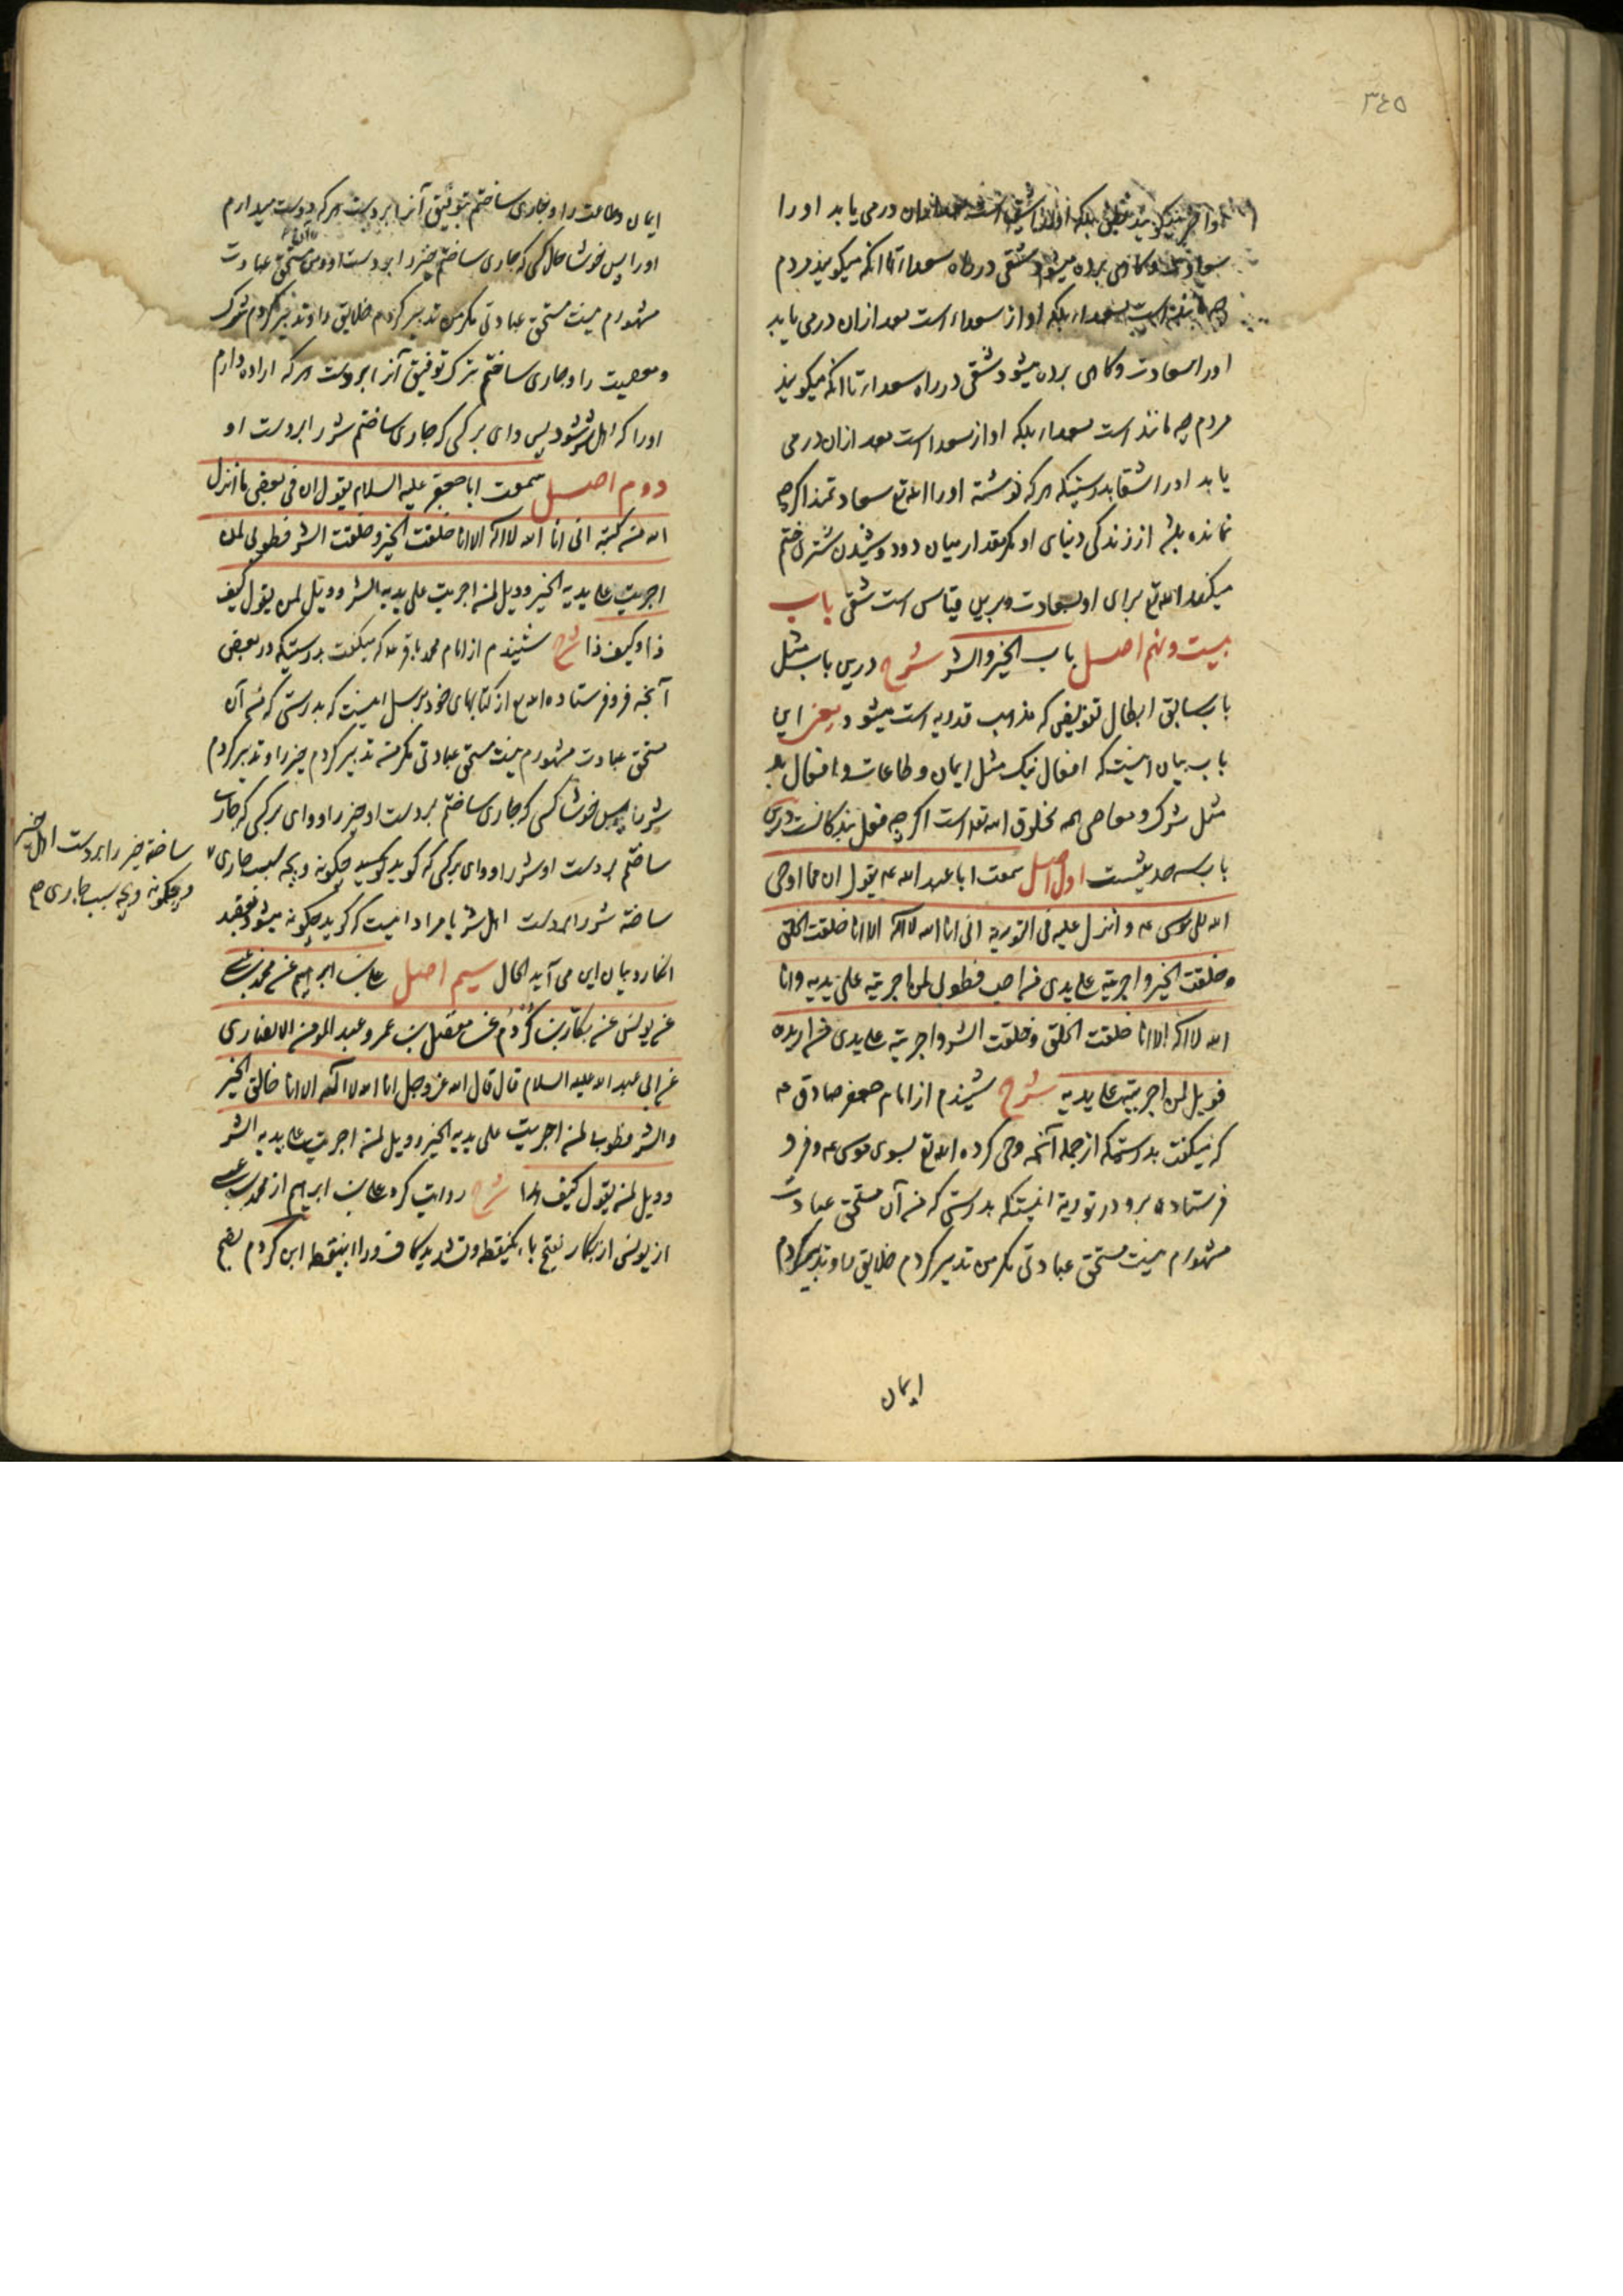 ٣٤٥
بلکه درمی یابد او را
سعادت و کاهی برده میشود شقی در راه سعداء تا آنکه میکویند مردم
چه مانند است بسعداء بلکه او از سعداء است بعد ازان درمی یابد
او را سعادت و کاهی برده میشود شقی در راه سعداء تا انکه میکویند
مردم چه مانند است بسعداء بلکه او از سعداست بعد ازان درمی
یابد او را شقا بدرستیکه هر که نوشته او را الله تع سعادتمند اکرچه
نمانده باشد از زندکی دنیای او مکر مقدار میان دو دوشیدن شتر ختم
میکند الله تع برای او بسعادت و برین قیاس است شقی باب
بیست و نهم اصل باب الخیر و الشر شرح درین باب مثل
باب سابق ابطال تفویضی که مذهب قدریه است میشود یعنی این
باب بیان اینست که افعال نیک مثل ایمان و طاعات و افعال بد
مثل شرک و معاصی همه مخلوق الله تعه است اکرچه فعل بندکانست درین
باب سه حدیثست اول اصل سمعت ابا عبد الله عه یقول ان مما اوحی
الله الی موسی عه و انزل علیه فی التوریة انی انا الله لا اله الا انا خلقت الخلق
و خلقت الخیر و اجریته علی یدی من احب فطوبی لمن اجریته علی یدیه و انا
الله لا اله الا انا خلقت الخلق و خلقت الشر و اجریته علی یدی من اریده
فویل لمن اجریته علی یدیه شرح شنیدم از امام جعفر صادق عه
که میکفت بدرستیکه از جمله آنچه وحی کرده الله تع بسوی موسی عه و فرو
فرستاده برو در توریة اینستکه بدرستی که من آن مستحق عبادت
مشهورم نیست مستحق عبادتی مکر من تدبیر کردم خلایق را و تدبیر کردم
ایمان
ایمان و طاعت را و جاری ساختم بتوفیق آنرا بر دست هر که دوست میدارم
او را پس خوشا حال کسی که جاری ساختم خیر را بر دست او و من مستحق عبادت
مشهورم نیست مستحق عبادتی مکر من تدبیر کردم خلایق را و تدبیر کردم شرک
و معصیت را و جاری ساختم بترک توفیق آنرا بر دست هر که اراده دارم
او را که اهل شر شود پس وای بر کسی که جاری ساختم شر را بر دست او
دوم اصل سمعت ابا جعفر علیه السلام یقول ان فی بعض ما انزل
الله من کتبه انی انا الله لا اله الا انا خلقت الخیر و خلقت الشر فطوبی لمن
اجریت علی یدیه الخیر و ویل لمن اجریت علی یدیه الشر و ویل لمن یقول کیف
ذا و کیف ذا شرح شنیدم از امام محمد باقر عه که میکفت بدرستیکه در بعضی
آنچه فرو فرستاده الله تع از کتابهای خود بر رسل اینست که بدرستی که منم آن
مستحق عبادت مشهورم نیست مستحق عبادتی مکر من تدبیر کردم خیر را و تدبیر کردم
شر را پس خوشا کسی که جاری ساختم بر دست او خیر را و وای بر کسی که جاری
ساختم بر دست او شر را و وای بر کسی که کوید چکونه و بچه سبب جاری
ساخته شر را بر دست اهل شر یا مراد اینست که کوید چکونه میشود بقصد
انکار و بیان این می آید الحال سیم اصل علی بن ابراهیم عن محمد بن عیسی
عن یونس عن بکار بن کردم عن مفضل بن عمر و عبد المومن الانصاری
عن ابی عبد الله علیه السلام قال قال الله عز و جل انا الله لا اله الا انا خالق الخیر
و الشر فطوبی لمن اجریت علی یدیه الخیر و ویل لمن اجریت علی یدیه الشر
و ویل لمن یقول کیف هذا شرح روایت کرد علی بن ابراهیم از محمد بن عیسی
از یونس از بکار بفتح باء یکنقطه و تشدید کاف و راء بینقطه ابن کردم بضم
ساخته خیر را بر دست اهل خیر
و چکونه و بچه سبب جاری صح